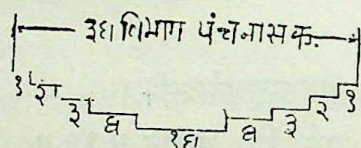 ३६ विभाग पंचनासक.
१ २ ३ ६ १६ ६ ३ २ १